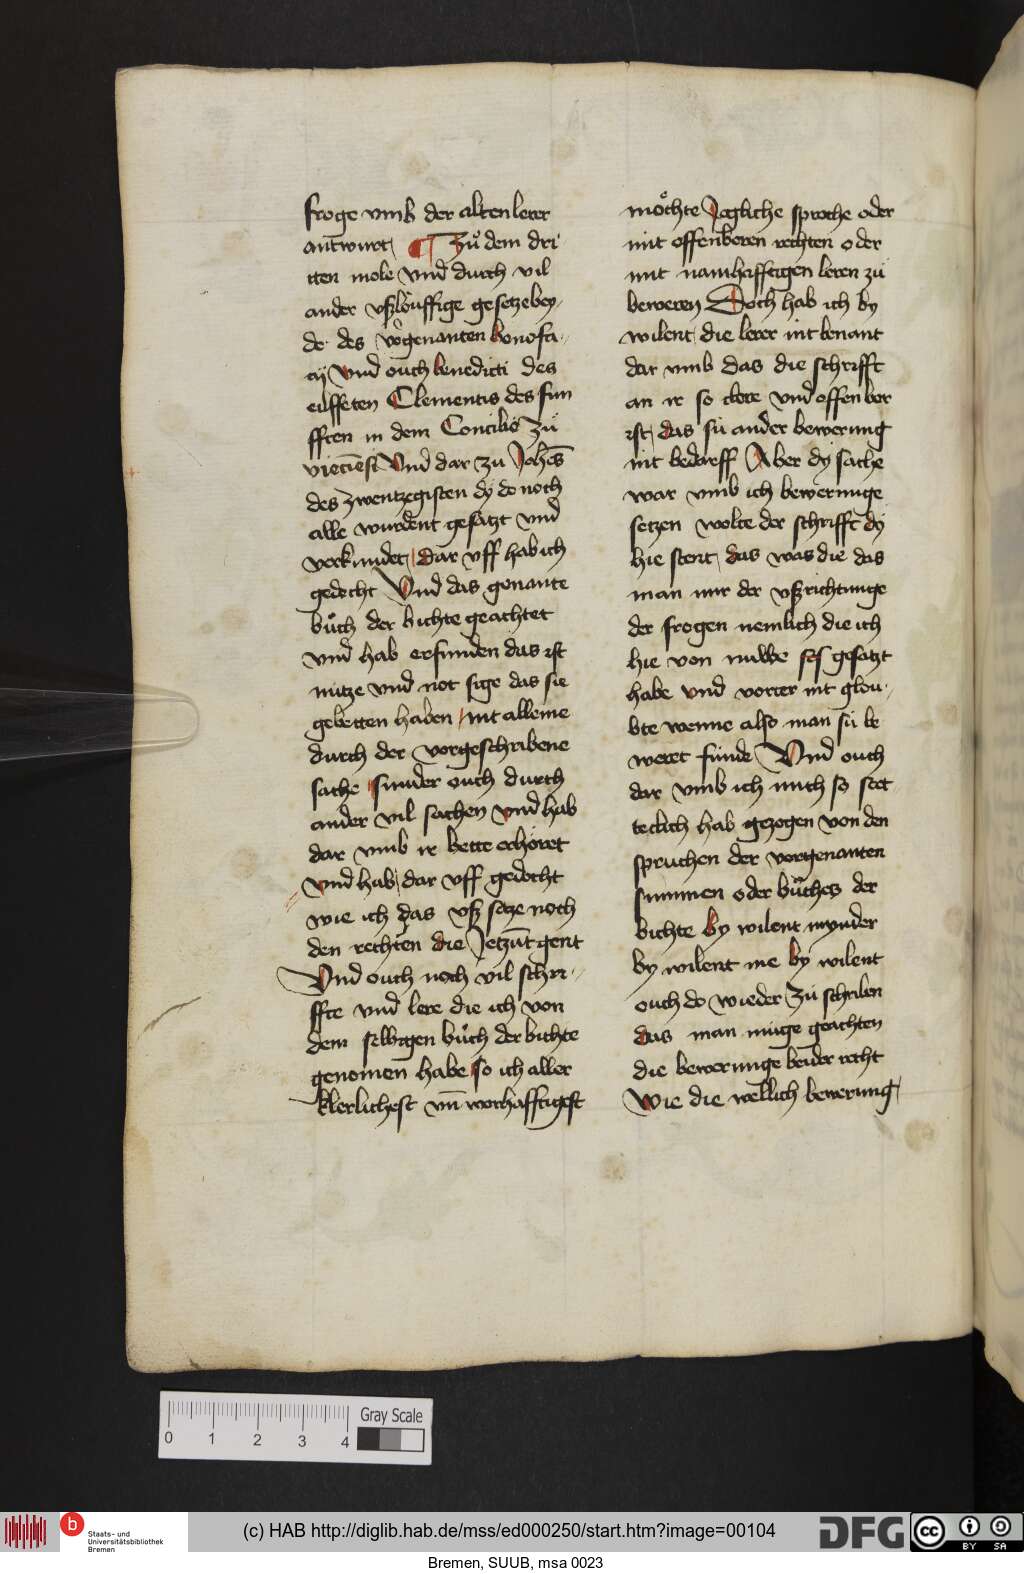 froge vmb der alten lerer
antwurt ¶ Zů dem dri
tten mole vnd durch vil
ander vßlöuffige gesetze bey
de des vorgenanten bonofa
cij Vnd ouch benedicti des
eilfften Clementis des fun
fften in dem Concilio zů
Vnd dar zu Johes
des zwentzegisten dy do noch
alle wurdent gesatzt vnd
verkundet dar vff hab ich
gedocht Vnd das genante
bůch der bichte geachtet
vnd hab erfunden das ist
nutze vnd not sige das sie
gebetten haben nit alleine
durch der vorgeschribene
sache sunder ouch durch
ander vil sachen vnd hab
dar vmb ir bette erhöret
vnd hab dar vff gedocht
wie ich das vß satze noch
den rechten die Jetzūt gent
Vnd ouch noch vil schri
ffte vnd lere die ich von
dem selbigen bůch der bichte
genomen habe so ich aller
klerlichest vn̄ worhafftigest
möchte Jegliche sproche oder
mit offenboren rechten oder
mit namhafftigen leren zů
beweren Doch hab ich by
wilent die lerer nit benant
dar vmb das die schrifft
an ir so clore vnd offenbor
ist das sü ander bewerung
nit bedarff Aber dy sache
war vmb ich bewerunge
setzen wolte der schrifft dy
hie stent das was die das
man mir der vßrichtunge
der frogen nemlich die ich
hie von gesatzt
habe vnd vorter nit glou
bte wenne also man sü be
weret funde Vnd ouch
dar vmb ich mich so stet
teclich hab gezogen von den
spruchen der vorgenanten
summen oder bůches der
bichte by wilent mynder
by wilent me by wilent
ouch do wieder zů schriben
das man müge geachten
die bewerunge recht
Wie die wellich bewerung
0 1 2 3 4 Gray Scale
b Staats- und
Universitätsbibliothek
Bremen
(c) HAB http://diglib.hab.de/mss/ed000250/start.htm?image=00104
DFG
cc BY SA
Bremen, SUUB, msa 0023